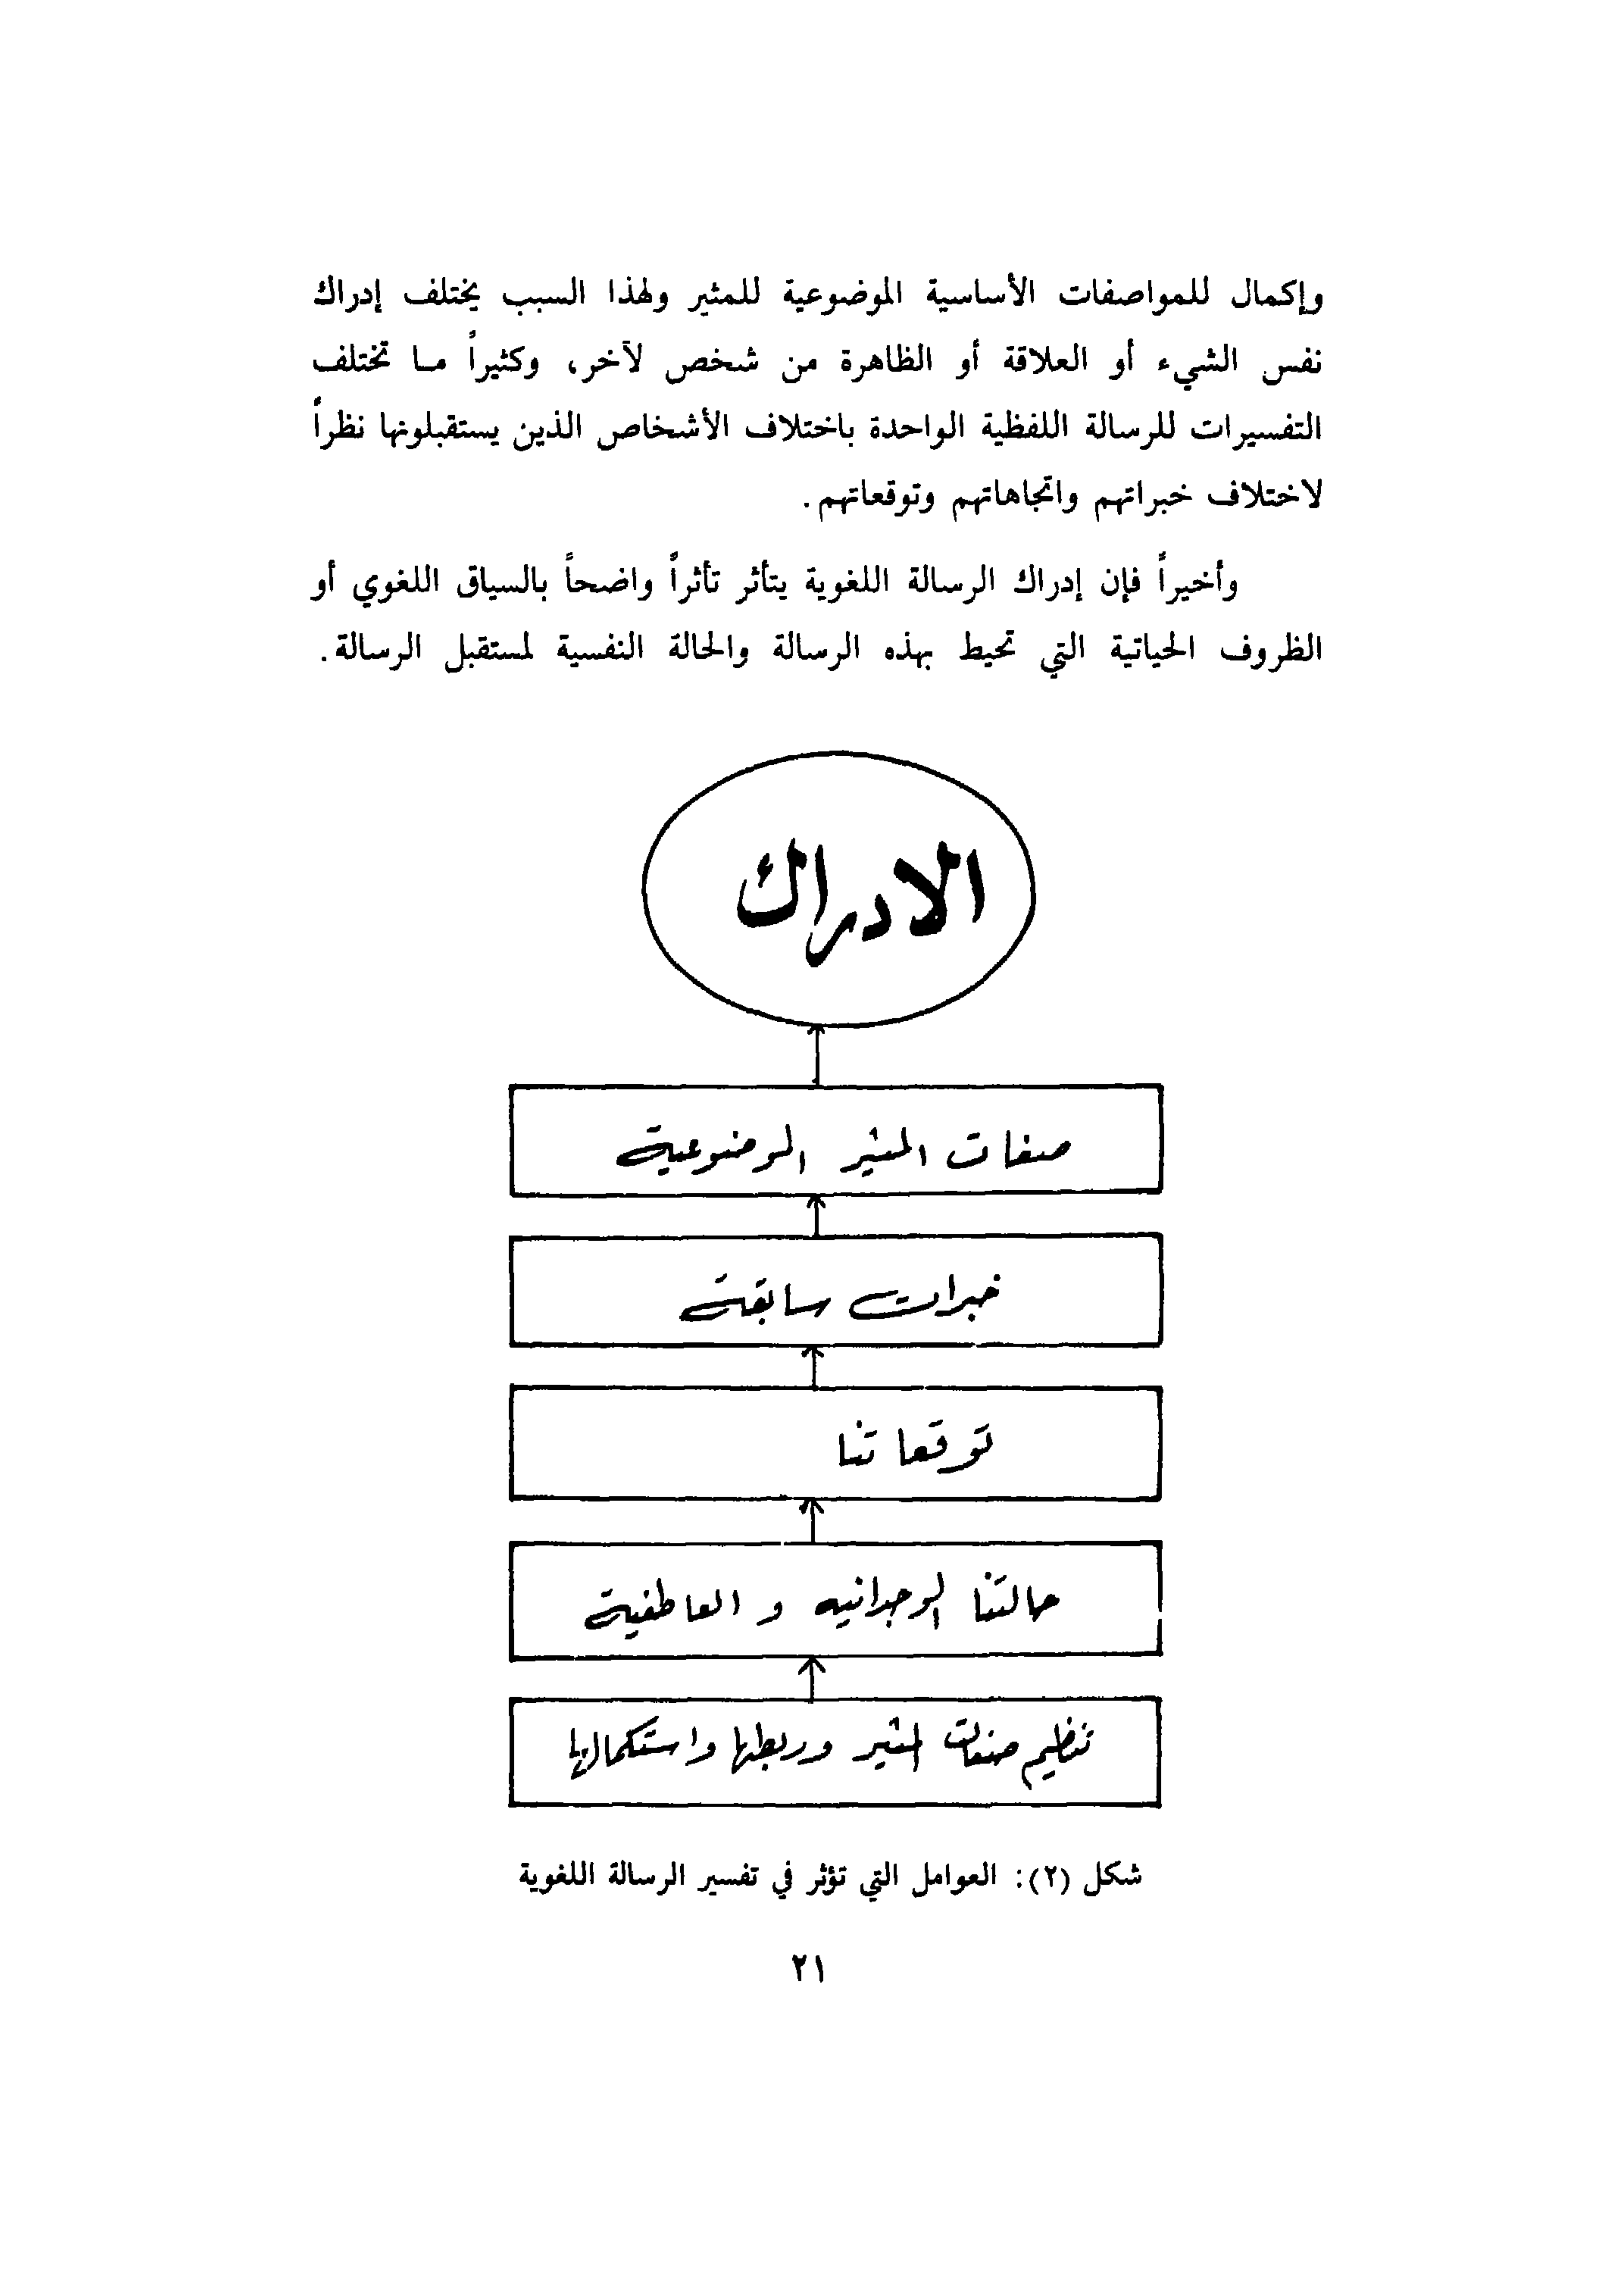 وإكمال للمواصفات الأساسية الموضوعية للمثير ولهذا السبب يختلف إدراك
نفس الشيء أو العلاقة أو الظاهرة من شخص لآخر، وكثيراً ما تختلف
التفسيرات للرسالة اللفظية الواحدة باختلاف الأشخاص الذين يستقبلونها نظراً
لاختلاف خبراتهم واتجاهاتهم وتوقعاتهم.
وأخيراً فإن إدراك الرسالة اللغوية يتأثر تأثراً واضحاً بالسياق اللغوي أو
الظروف الحياتية التي تحيط بهذه الرسالة والحالة النفسية لمستقبل الرسالة.
الادراك
صفات المثير الموضوعية
خبرات سابقة
توقعاتنا
حالتنا الوجدانيه و العاطفية
تنظيم صفات المثير وربطها واستكمالها
شكل (٢): العوامل التي تؤثر في تفسير الرسالة اللغوية
٢١